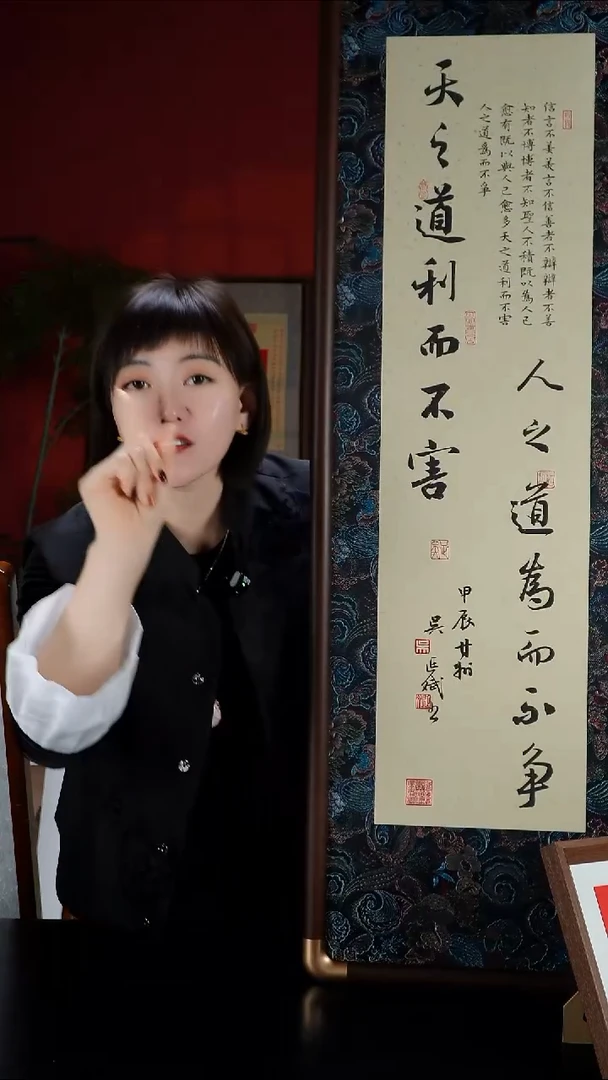 信言不美美言不信善者不辯辯者不善
知者不博博者不知聖人不積既以為人己
愈有既以與人己愈多天之道利而不害
人之道為而不争
天之道利而不害
人之道為而不争
甲辰
吳